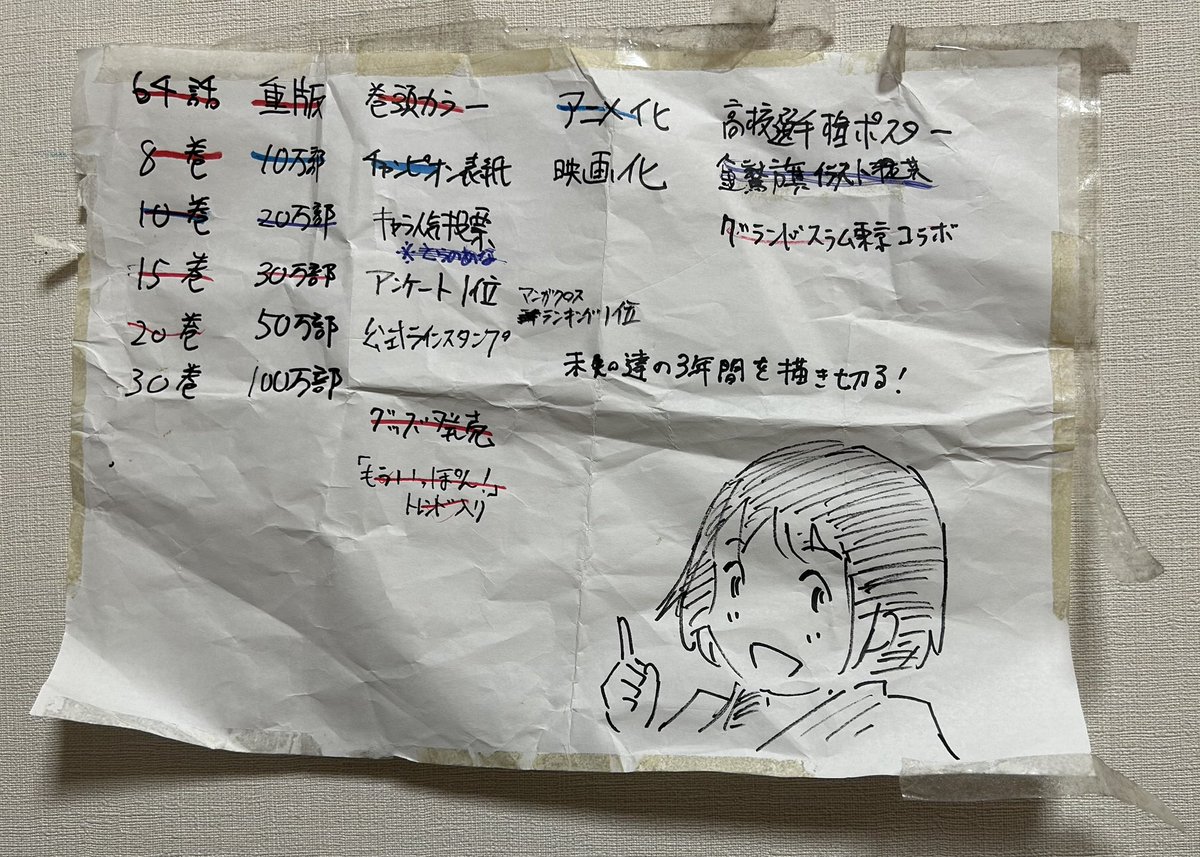 64話
8巻
10巻
15巻
20巻
30巻
重版
10万部
20万部
30万部
50万部
100万部
巻頭カラー
チャンピオン表紙
キャラ人気投票
※とらのあな
アンケート1位
公式ラインスタンプ
グッズ発売
「もういっぽん!」
トレンド入り
アニメ化
映画化
マンガクロス
ランキング1位
高校選手権ポスター
金鷲旗イラスト
グランドスラム東京コラボ
未知達の3年間を描き切る!